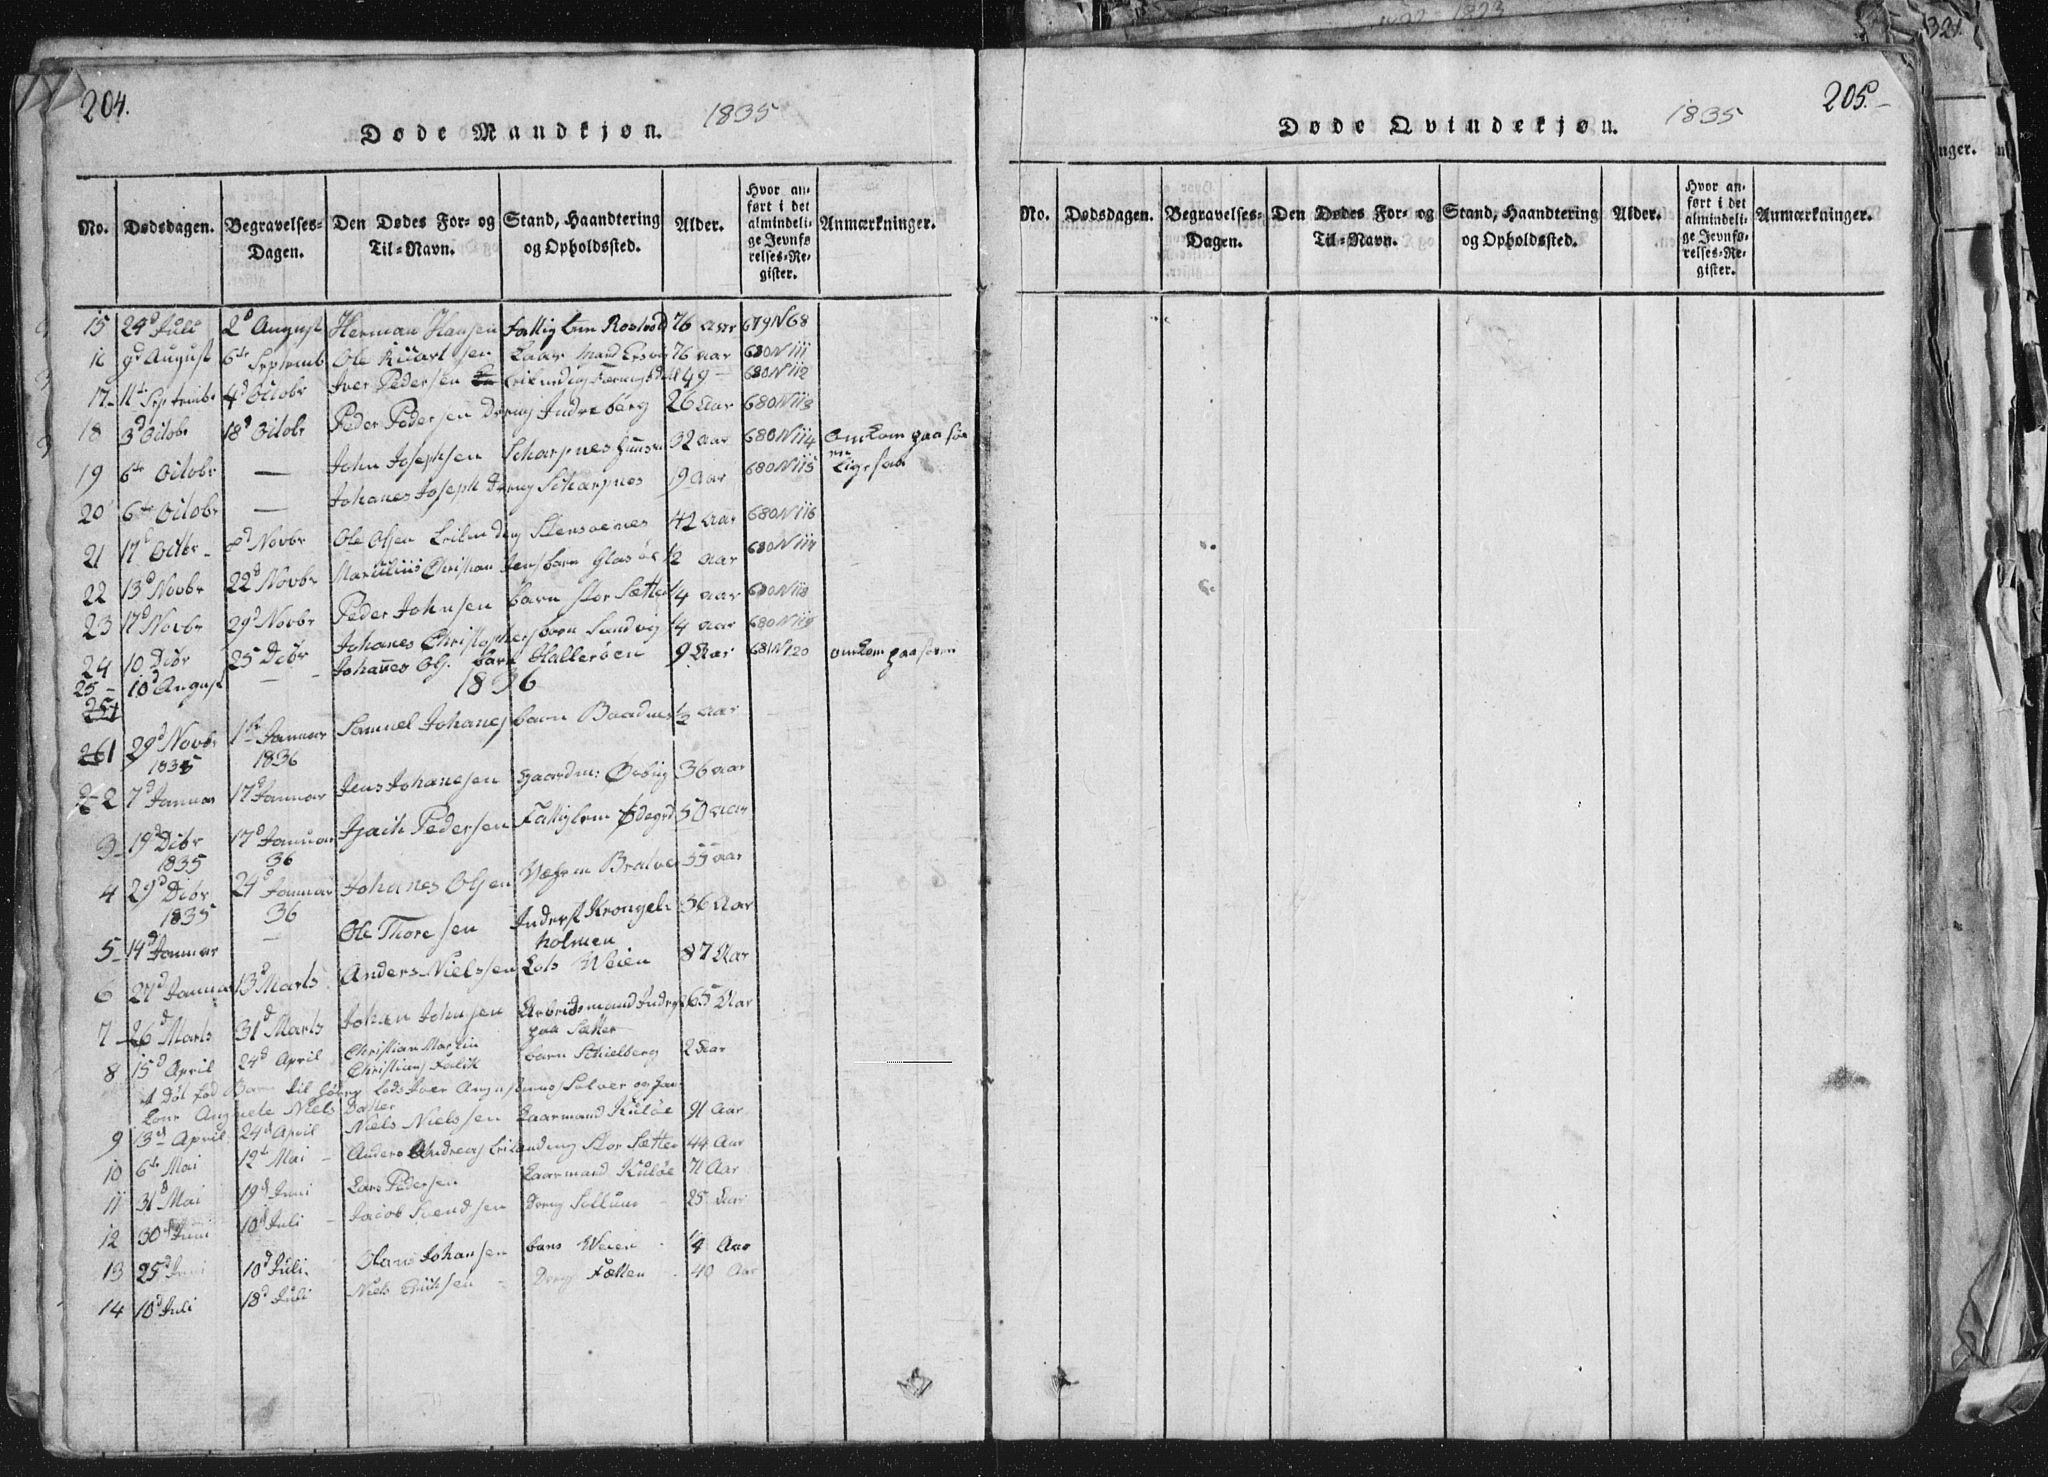 204.
1835
Døde Mandkjøn.
No.
Dødsdagen.
Begravelses-
Dagen.
Den Dødes For- og
Til-Navn.
Stand, Haandtering
og Opholdssted.
Alder.
Hvor an-
ført i det
almindeli-
ge Jevnfø-
relses-Re-
gister.
Anmærkninger.
15 24d Juli 2d August Herman Hansen Fattiglem Rostvod 76 aar 679 N 68
16 9d August 6te Septemb Ole Kuartsen Laar Mand 76 aar 680 N 111
17 11te Septembr 4d Octobr Iver Pedersen 49 - 680 N 112
18 3d Octobr 18d Octobr Peder Pedersen Dreng Indreberg 26 Aar 680 N 113
19 6te Octobr — John Josephsen Scharpnes 32 aar 680 N 114 Omkom paa Søe
en
Ligesaa
20 6te Octobr — Johanes Joseph Dreng Scharpnes 19 Aar 680 N 115
21 17d Octbr 8d Novbr Ole Olsen Stensoenes 42 Aar 680 N 116
22 13d Novbr 22d Novbr Christian Jens barn Glasøe 1/2 aar 680 N 117
23 17d Novbr 29d Novbr Peder Johnsen barn stor Sætte 1/4 aar 680 N 118
24 10 Dcbr 25 Dcbr Johanes Christophers barn Sandvig 1/4 aar 680 N 119
25 10d August — Johanes Ols. barn Hallerøen 9 Aar 681 N 120 omkom paa søen
1836
1 29d Novbr 1te Januar Samuel Johanes barn Baadnes 1/2 aar
1835 1836
2 7d Januar 17d Januar Jens Johanesen Gaardm: 36 aar
3 19d Dcbr 17d Januar Pedersen Fattiglem Ødegrd 50 aar
1835 36
4 29d Dcbr 24d Januar Johanes Olsen 55 aar
1835 36
5 14d Januar — Ole Thoresen Inderst Krongel 36 Aar
holmen
6 27d Januar 13d Marts Anders Nielssen Lots Weien 87 Aar
7 26d Marts 31d Marts Johan Johnsen Arbeidsmand 65 Aar
paa Sætter
8 15d April 24d April Christian Martin barn Schielberg 2 Aar
Christians Falik
1 død fød Barn til Lods Iver Solver og
Lone Augnete Niels Datter
9 13d April 24d April Niels Nielssen Laarmand Kuløe 91 Aar
10 6te Mai 12te Mai Anders Andreas Stor Sætte 44 Aar
11 31d Mai 19d Juni Lars Pedersen Laarmand Kuløe 71 Aar
12 30d Juni 10d Juli Jacob Svendsen Dreng Sollum 25 Aar
13 25d Juni 10d Juli Johansen barn Weien 1/4 Aar
14 10d Juli 18d Juli Niels Eriksen Dreng Fætten 40 Aar
205.
1835
Døde Qvindekjøn.
No.
Dødsdagen.
Begravelses-
Dagen.
Den Dødes For- og
Til-Navn.
Stand, Haandtering
og Opholdssted.
Alder.
Hvor an-
ført i det
almindeli-
ge Jevnfø-
relses-Re-
gister.
Anmærkninger.
321.
nger.